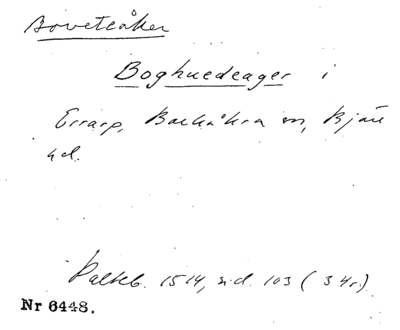 Bovetåker
Boghuedeager i
Errarp, Barkåkra sn, Bjäre
hd.
Palteb. 1514, sid. 103 (3 4r.)
Nr 6448.